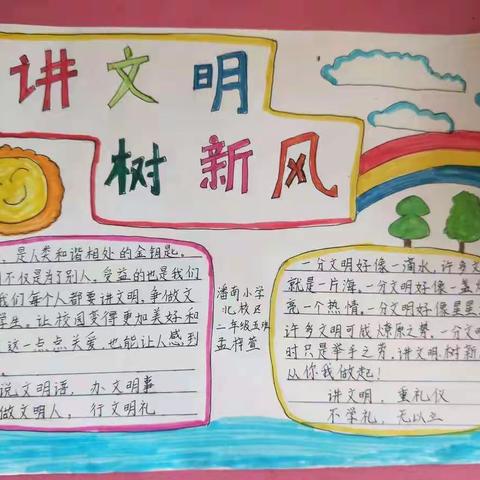 讲文明
树新风
，是人类和谐相处的金钥匙，
不仅是为了别人，受益的也是我们
我们每个人都要讲文明，争做文
学生，让校园变得更加美好和
这一点点关爱，也能让人感到
说文明语，办文明事
做文明人，行文明礼
潘南小学
北校区
二年级五班
孟梓萱
一分文明好像一滴水，许多文
就是一片海，一分文明好像一
亮一个热情，一分文明好像星星
许多文明可成燎原之势，一分文明
时只是举手之劳，讲文明树新
从你我做起！
讲文明，重礼仪
不学礼，无以立